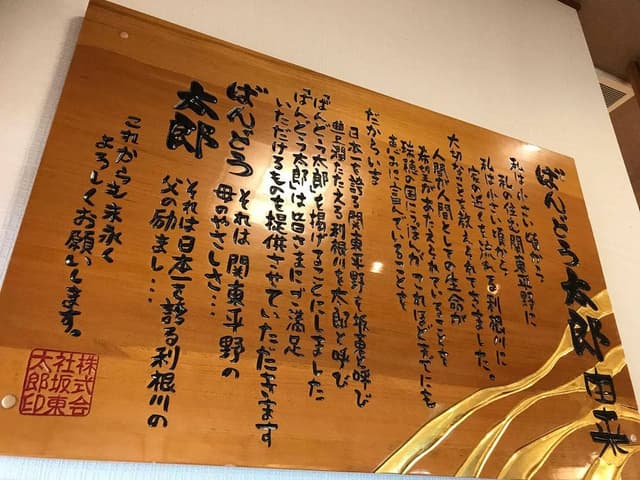 ばんどう太郎 由来
私は小さい頃から
私の住む関東平野に
私は小さい頃から
家の近くを流れる利根川に。
大切なことを教えられてきました。
人間が人間としての生命が
希望があたえられていることを
瑞穂の国にっぽんがこれほどまでにも
に富んでいることを
だからいま
日本一を誇る関東平野を坂東と呼び
豊潤たたえる利根川を太郎と呼び
「ばんどう太郎」を掲げることにしました
「ばんどう太郎」は皆さまにご満足
いただけるものを提供させていただきます
ばんどう それは関東平野の
母のやさしさ・・・
太郎 それは日本一を誇る利根川の
父の励まし・・・
これからも末永く
よろしくお願いします。
株式会
社坂東
太郎印